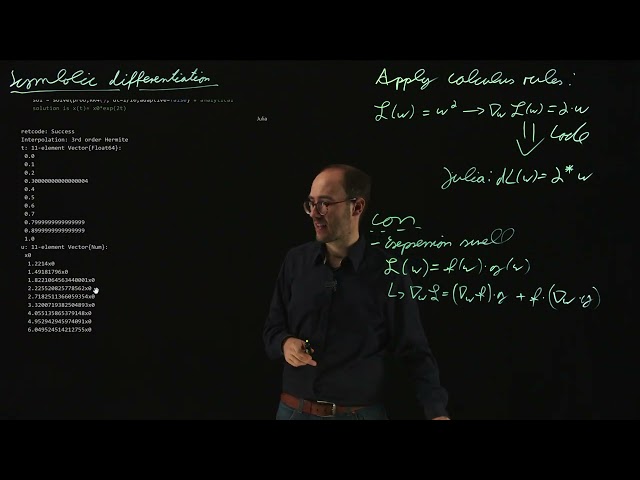 Symbolic differentiation
sol = solve(prob,RK4(), dt=1/10,adaptive=false) # analytical
solution is x(t)= x0*exp(2t)
Julia
retcode: Success
Interpolation: 3rd order Hermite
t: 11-element Vector{Float64}:
0.0
0.1
0.2
0.30000000000000004
0.4
0.5
0.6
0.7
0.7999999999999999
0.8999999999999999
1.0
u: 11-element Vector{Num}:
x0
1.2214x0
1.49181796x0
1.8221064563440001x0
2.225520825778562x0
2.7182511366059354x0
3.3200719382504893x0
4.055135865379148x0
4.952942945974091x0
6.049524514212755x0
Apply calculus rules:
L(w) = w² → ∇w L(w) = 2·w
⇓ Code
Julia: dL(w) = 2*w
con
- Expression swell
L(w) = f(w)·g(w)
↳ ∇w L = (∇w f)·g + f·(∇w·g)